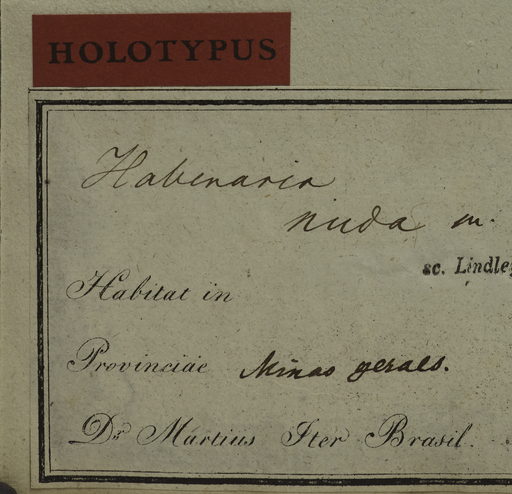 HOLOTYPUS
Habenaria
nuda m.
sc. Lindley
Habitat in
Provinciae Minas geraes.
Dr Martius Iter Brasil.